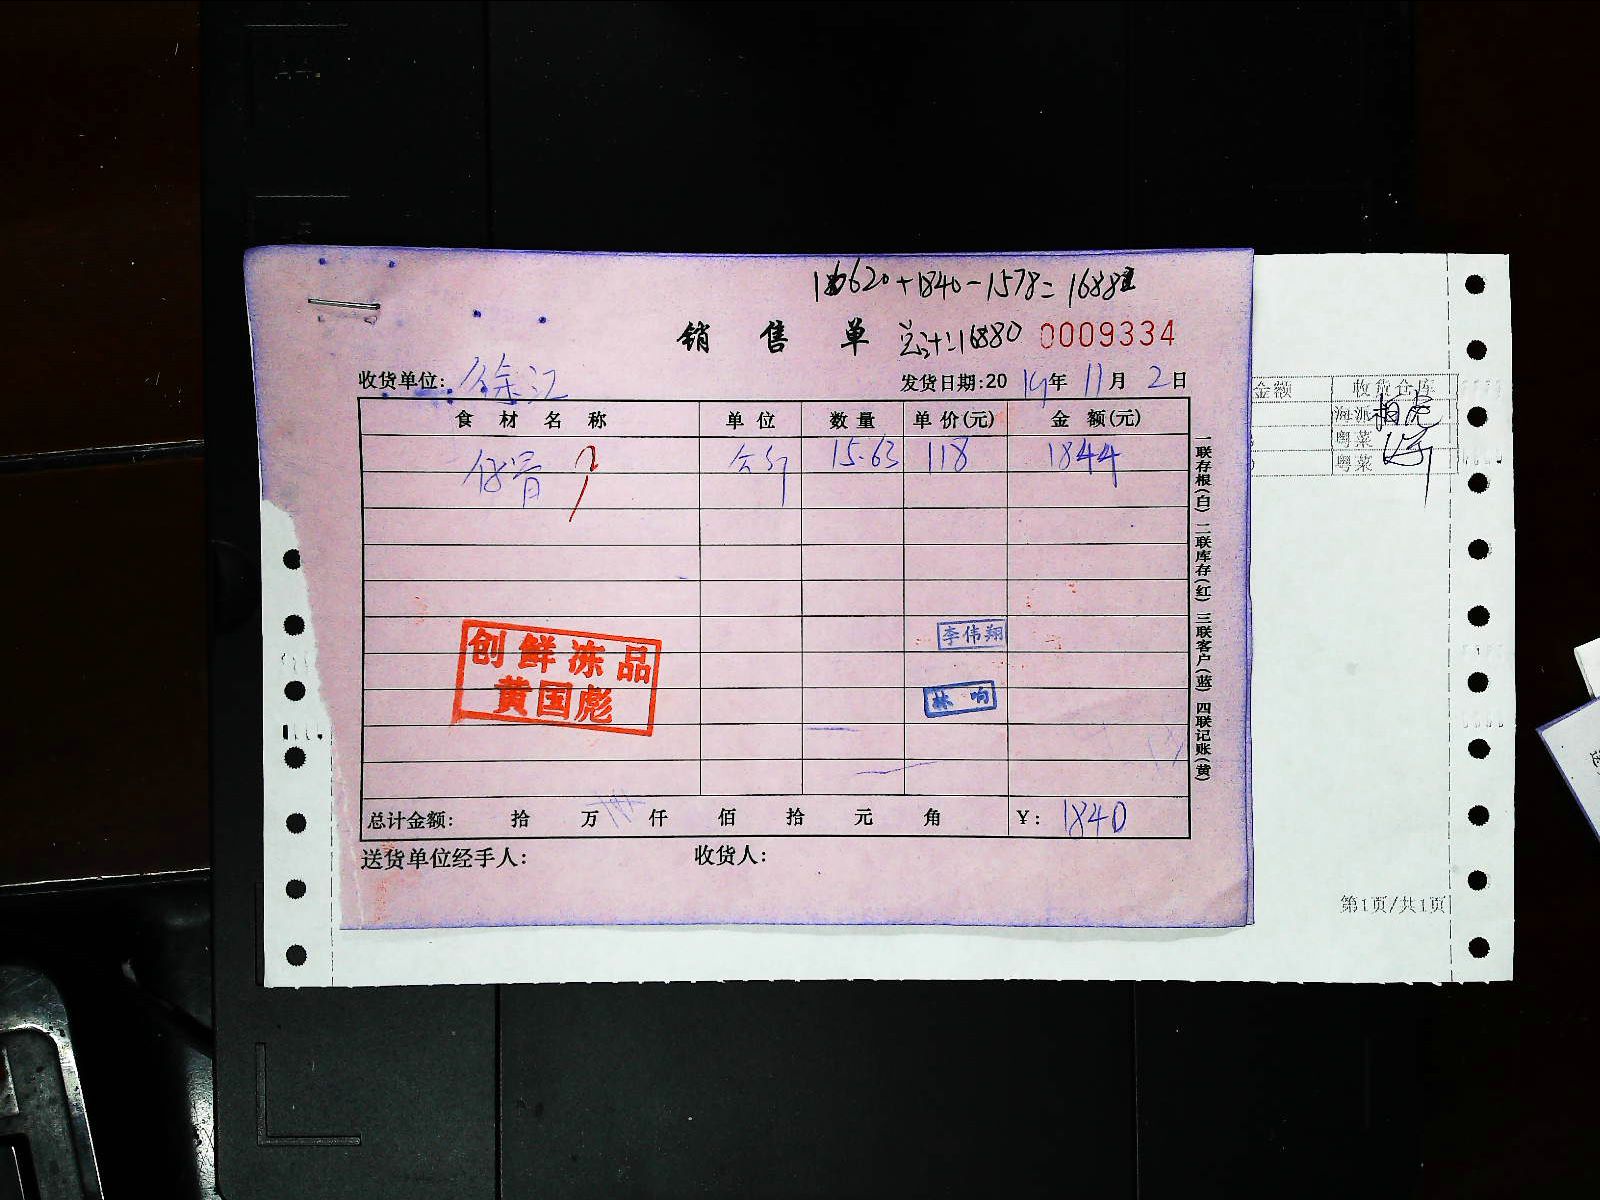 16620+1840-1578=16882
销售单 总计=16880 0009334
收货单位: 徐汇 发货日期:2019年11月2日
食材名称 单位 数量 单价(元) 金额(元)
公斤 15.63 118 1844
一联存根(白) 二联库存(红) 三联客户(蓝) 四联记账(黄)
李伟翔
创鲜冻品
黄国彪
林响
总计金额: 拾 万 仟 佰 拾 元 角 ¥: 1840
送货单位经手人: 收货人:
金额 收货仓库
海派
粤菜
粤菜
第1页/共1页